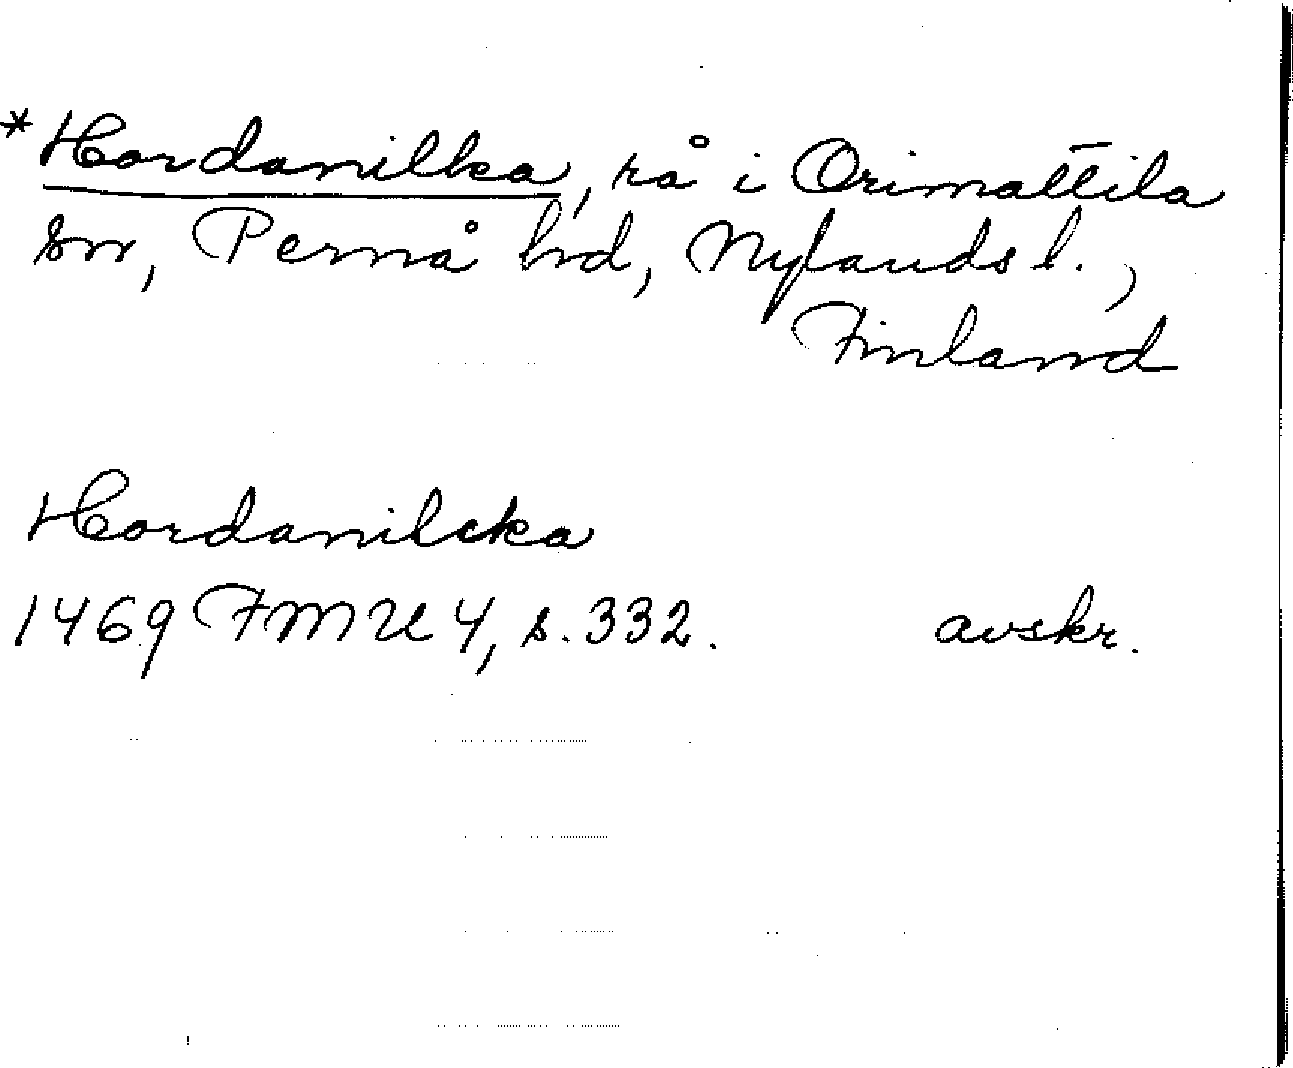 *Hordanilka, rå i Orimattila
sn, Pernå hrd, Nylands l.,
Finland
Hordanilcka
1469 FMU 4, s. 332. avskr.